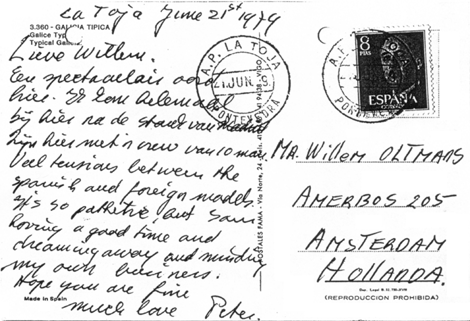 La Toja June 21st 1979
3.360 - GALICIA TIPICA
Galice Typ
Typical Gali
Lieve Willem.
Een spectaculair oord
hier. Ik kom helemaal
bij hier na de stad van
zijn hier met 'n crew van 10 man.
Veel tensions between the
spanish and foreign models.
it's so pathetic but I am
having a good time and
dreaming away and minding
my own business.
Hope you are fine
much love Peter.
Made in Spain
A.P. LA TOJA
21.JUN.79
PONTEVEDRA
POSTALES FAMA - Vía Norte, 24
A.P.
PONTEVED
8
PTAS
ESPAÑA
MR. Willem OLTMANS
AMERBOS 205
AMSTERDAM
HOLLANDA.
(REPRODUCCION PROHIBIDA)